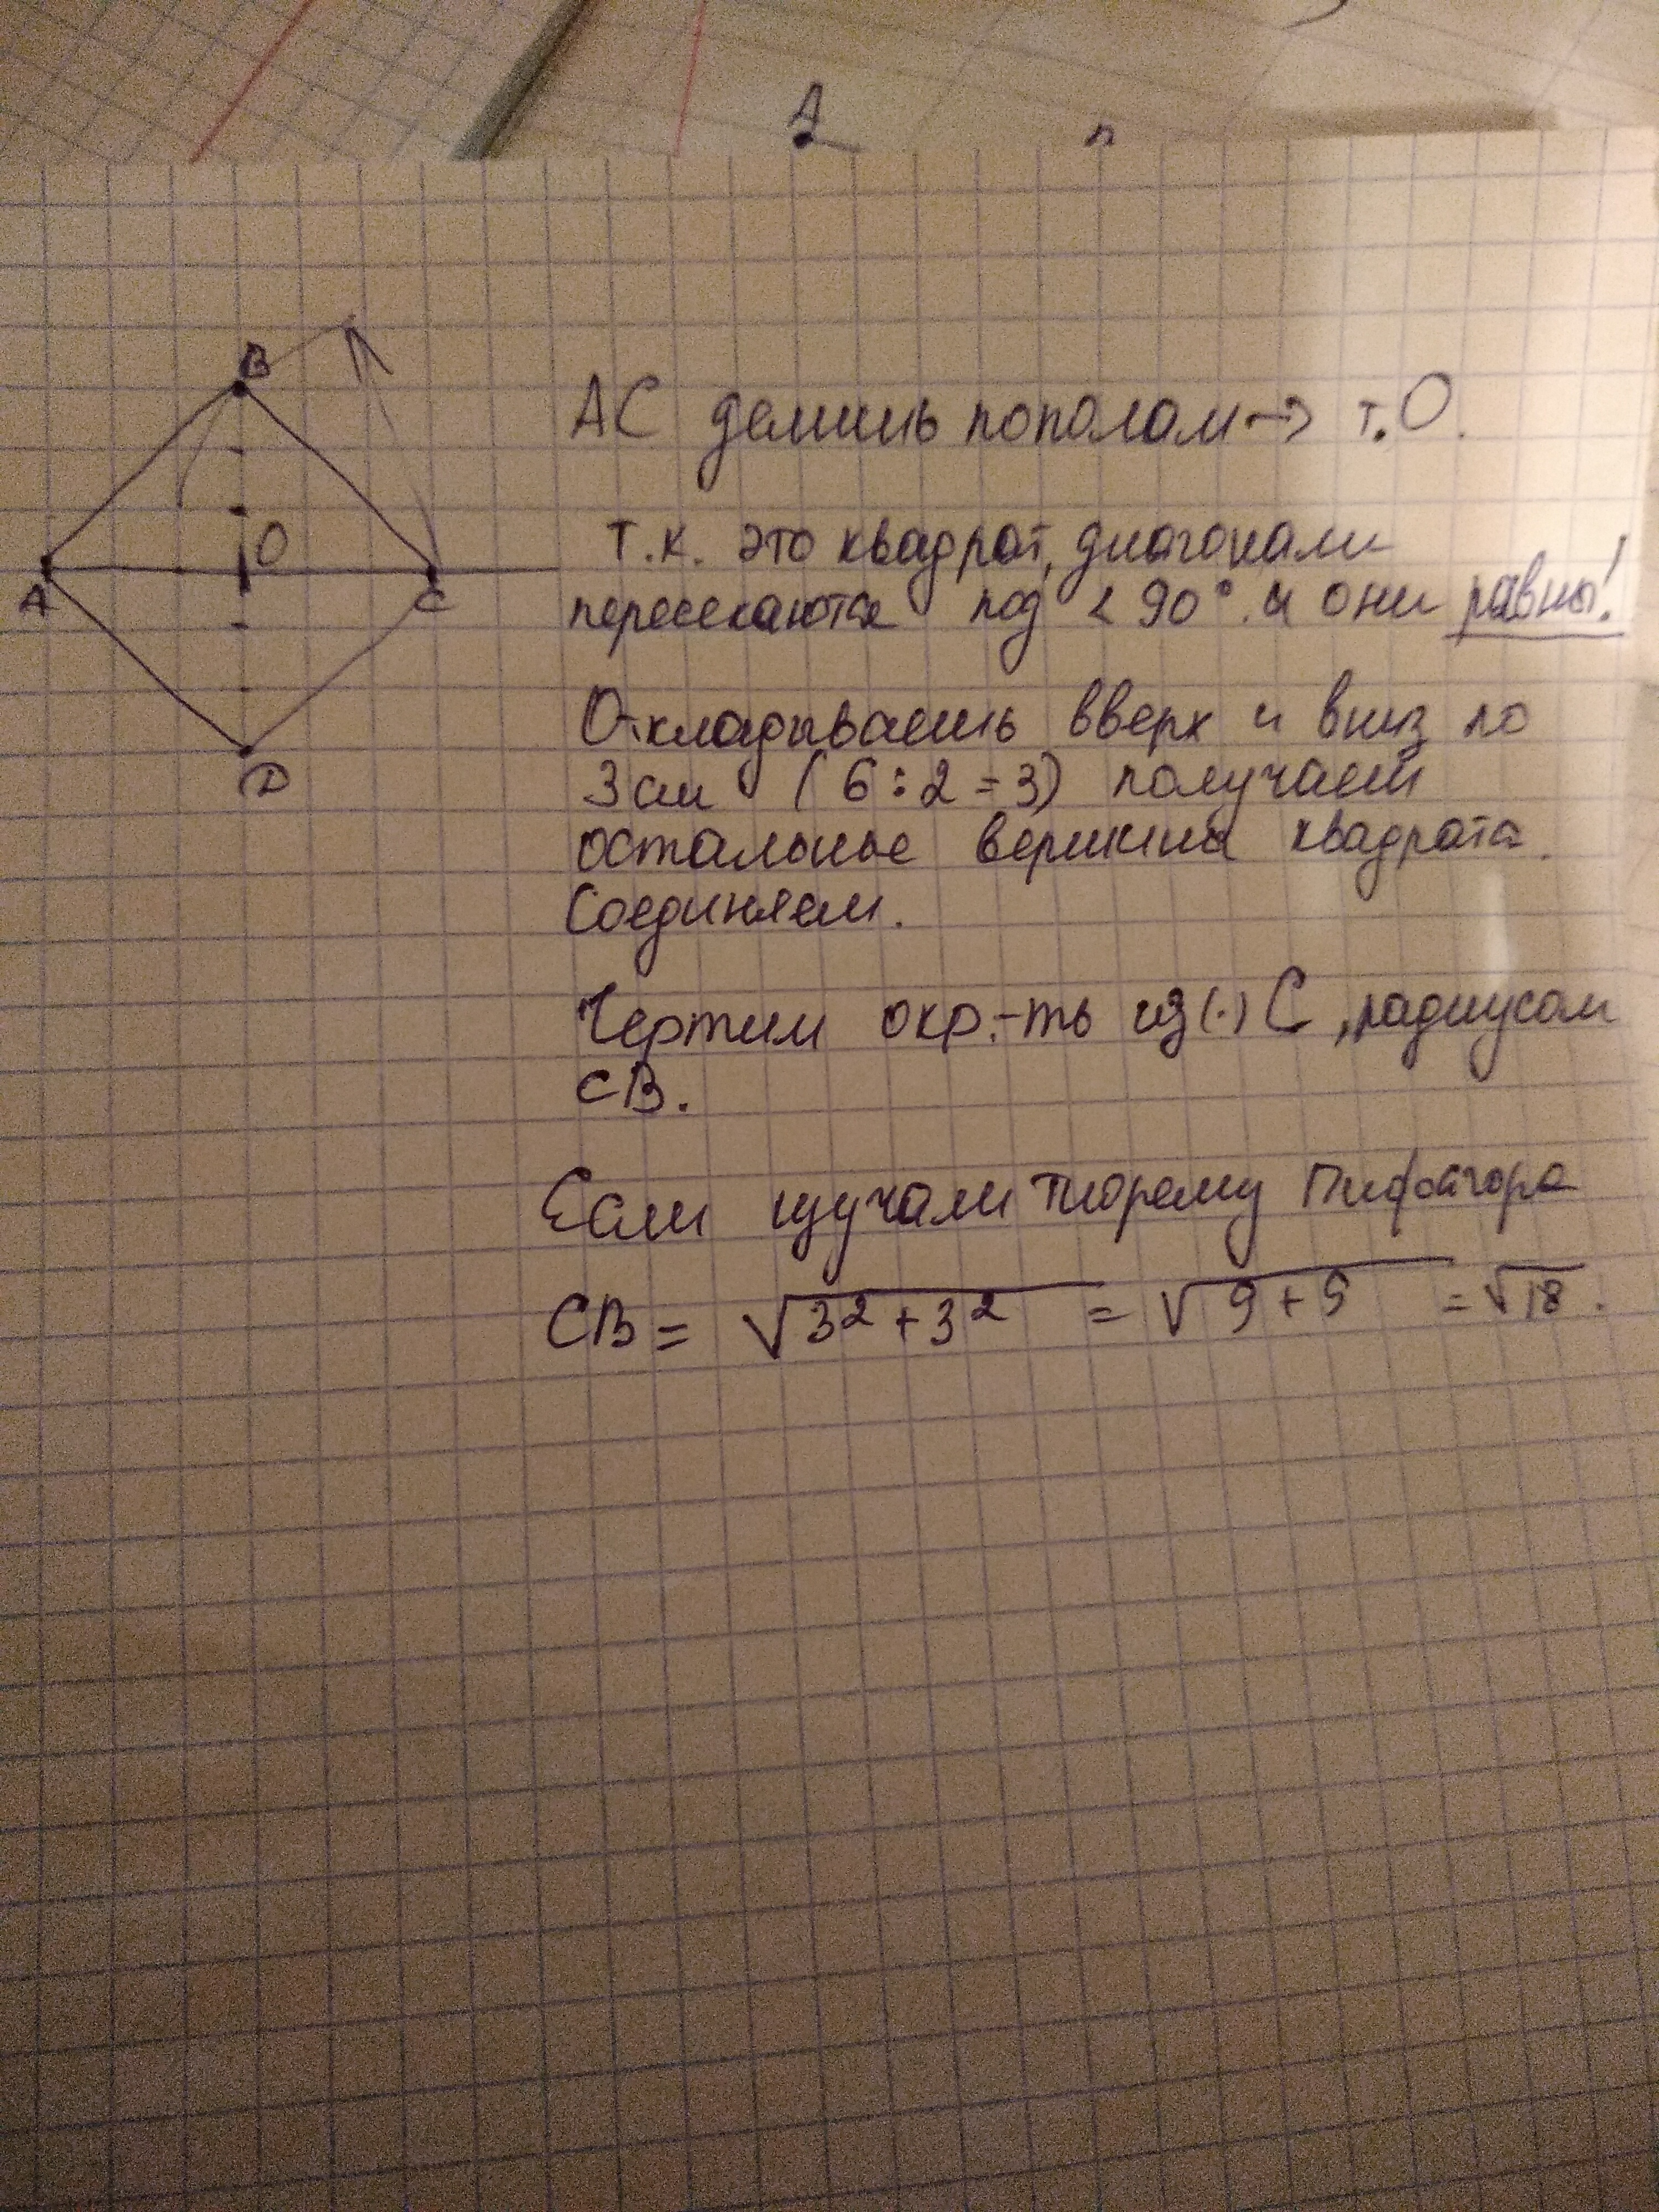 А
В
О
А
С
D
АС делишь пополам → т.О.
т.к. это квадрат, диагонали
пересекаются под < 90° и они равны!
Откладываешь вверх и вниз по
3 см (6:2=3) получаем
остальные вершины квадрата.
Соединяем.
Чертим окр.-ть из (·) С, радиусом
СВ.
Если изучали теорему Пифагора
СВ = √3² + 3² = √9 + 9 = √18.